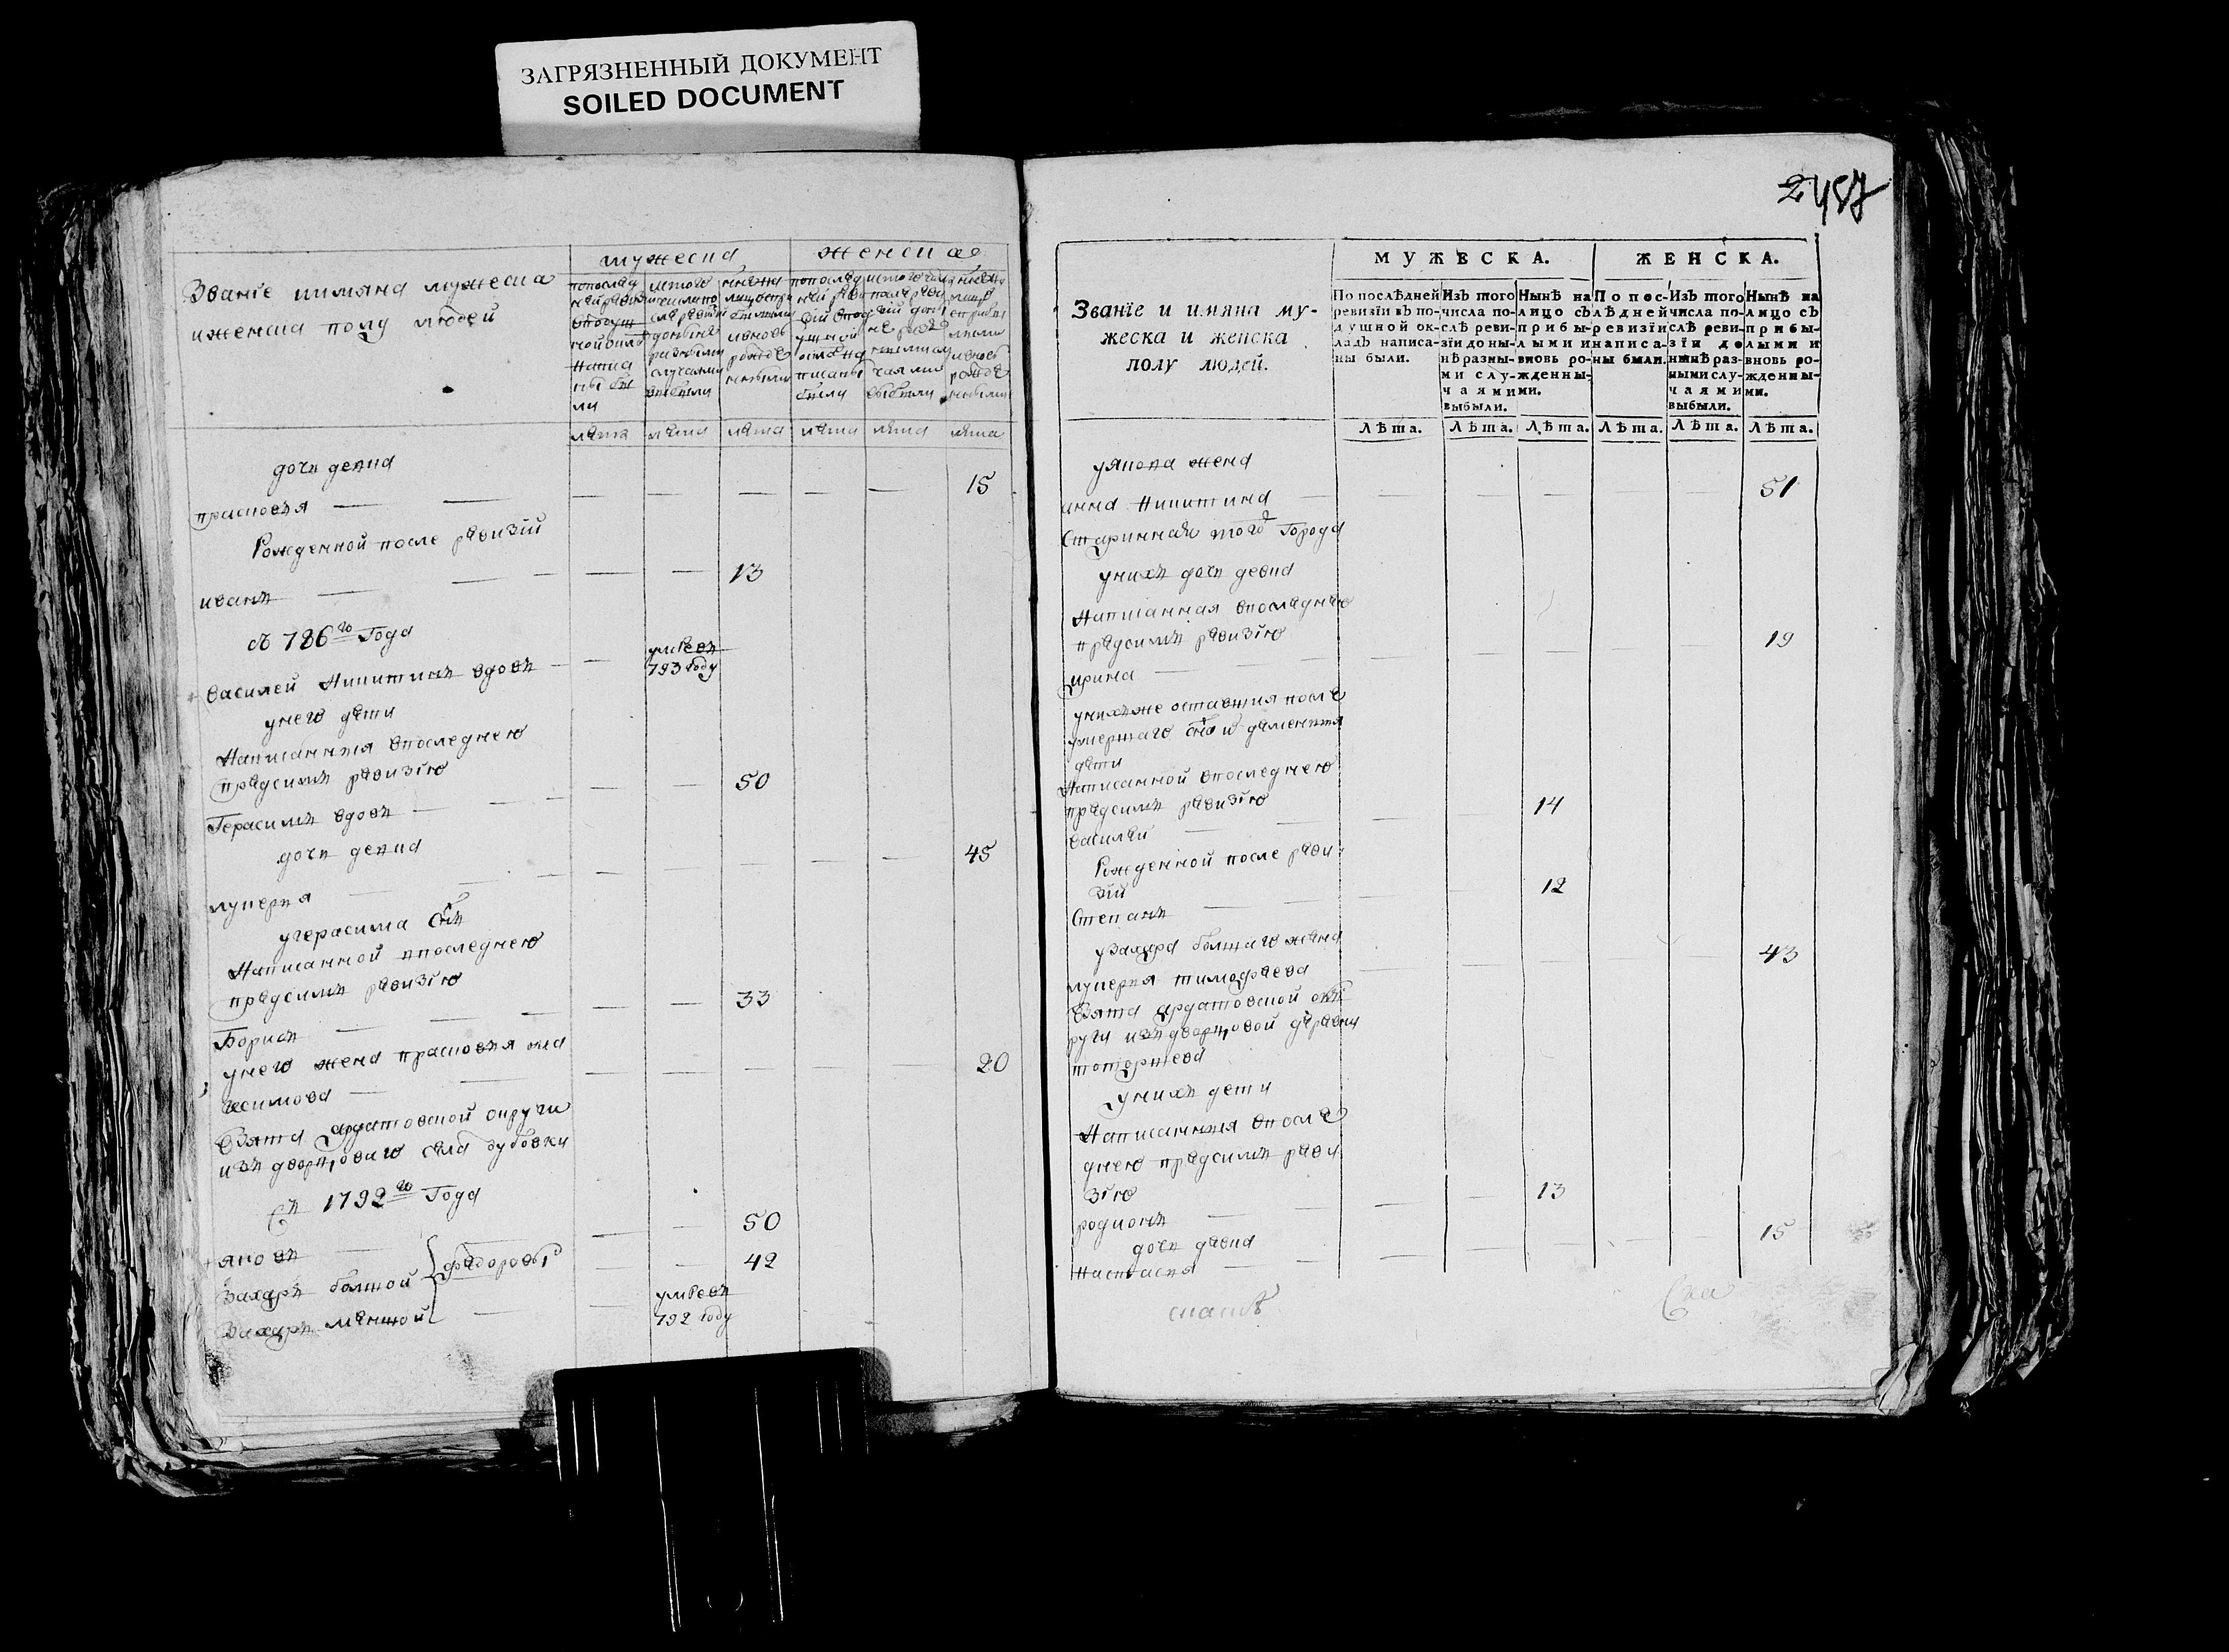 ЗАГРЯЗНЕННЫЙ ДОКУМЕНТ
SOILED DOCUMENT
Званїе иимяна мужеска
иженска полу людей
мужеска
женска
лѣта лѣта лѣта лѣта лѣта лѣта
дочь девка
прасковья — — — — — — — 15
Рожденной после ревизїй
иванъ — — — — — 13
съ 786го Года
василей никитинъ вдовъ — — умревъ
793 году
унего дети
Написанныя впоследнею
предсимъ ревизїю
Герасимъ вдовъ — — — — — 50
дочь девка
лукерья — — — — — — — 45
угерасима сынъ
Написанной впоследнею
предсимъ ревизїю
Борисъ — — — — — 33
унего жена прасковья
— — — — — — — 20
взята ардатовской округи
изъ дворцоваго села дубовки
Съ 1792го Года
яковъ — — — 50
Захаръ болшой федоровы — — 42
Захаръ меншой — — умревъ
792 году
2487
Званїе и имяна му-
жеска и женска
полу людей.
МУЖЕСКА.
ЖЕНСКА.
По послѣдней ревизїи въ подушной окладъ написаны были.
Изъ того числа послѣ ревизїи до нынѣ разными случаями выбыли.
Нынѣ на лицо съ прибылыми и вновь рожденными.
По послѣдней ревизїи написаны были.
Изъ того числа послѣ ревизїи до нынѣ разными случаями выбыли.
Нынѣ на лицо съ прибылыми и вновь рожденными.
Лѣта. Лѣта. Лѣта. Лѣта. Лѣта. Лѣта.
уякова жена
анна Никитина — — — — — — 51
Старинная того Города
унихъ дочь девка
Написанная впоследнею
предсимъ ревизїю
ирина — — — — — — 19
унихъже оставшия после
умершаго сына дементья
дети
Написанной впоследнею
предсимъ ревизїю
василей — — — 14
Рожденной после реви-
зїй
Степанъ — — — 12
узахара болшаго жена
лукерья тимофеева — — — — — 43
взята ардатовской ок
руги издворцовой деревни
унихъ дети
Написанныя впосле
днею предсимъ реви
зїю
родионъ — — — 13
дочь девка
настасья — — — — — — — 15